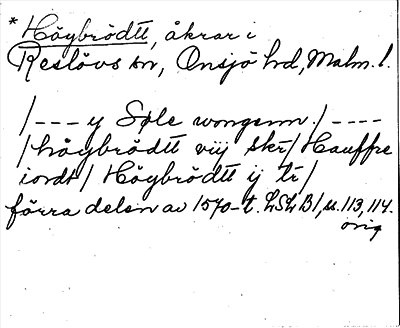 * Högbrödtt, åkrar i
Reslövs sn, Onsjö hd, Malm. l.
/--- y Søle wongenn. /----
/ högbrödtt viij skr / Hauffre
iordt / Högbrödtt ij tr /
förra delen av 1570-t. LSLB1, s. 113, 114.
orig